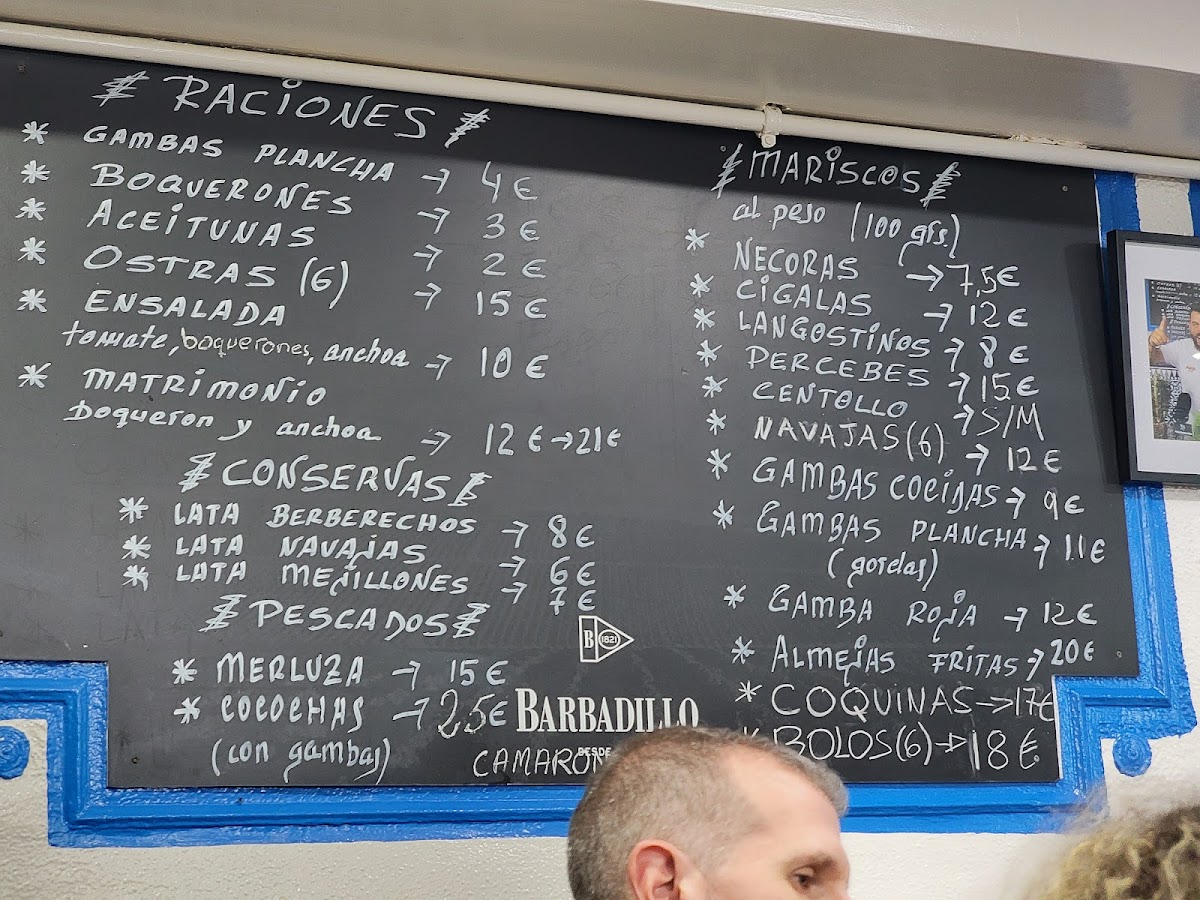 RACIONES
* GAMBAS PLANCHA → 4€
* BOQUERONES → 3€
* ACEITUNAS → 2€
* OSTRAS (6) → 15€
* ENSALADA
tomate, boquerones, anchoa → 10€
* MATRIMONIO
boqueron y anchoa → 12€→21€
CONSERVAS
* LATA BERBERECHOS → 8€
* LATA NAVAJAS → 6€
* LATA MEJILLONES → 7€
PESCADOS
* MERLUZA → 15€
* COCOCHAS → 25€
(con gambas)
B 1821
BARBADILLO
DESDE
CAMARON
MARISCOS
al peso (100 grs.)
* NECORAS → 7,5€
* CIGALAS → 12€
* LANGOSTINOS → 8€
* PERCEBES → 15€
* CENTOLLO → S/M
* NAVAJAS (6) → 12€
* GAMBAS COCIDAS → 9€
* GAMBAS PLANCHA → 11€
(gordas)
* GAMBA ROJA → 12€
* ALMEJAS FRITAS → 20€
* COQUINAS → 17€
* BOLOS (6) → 18€